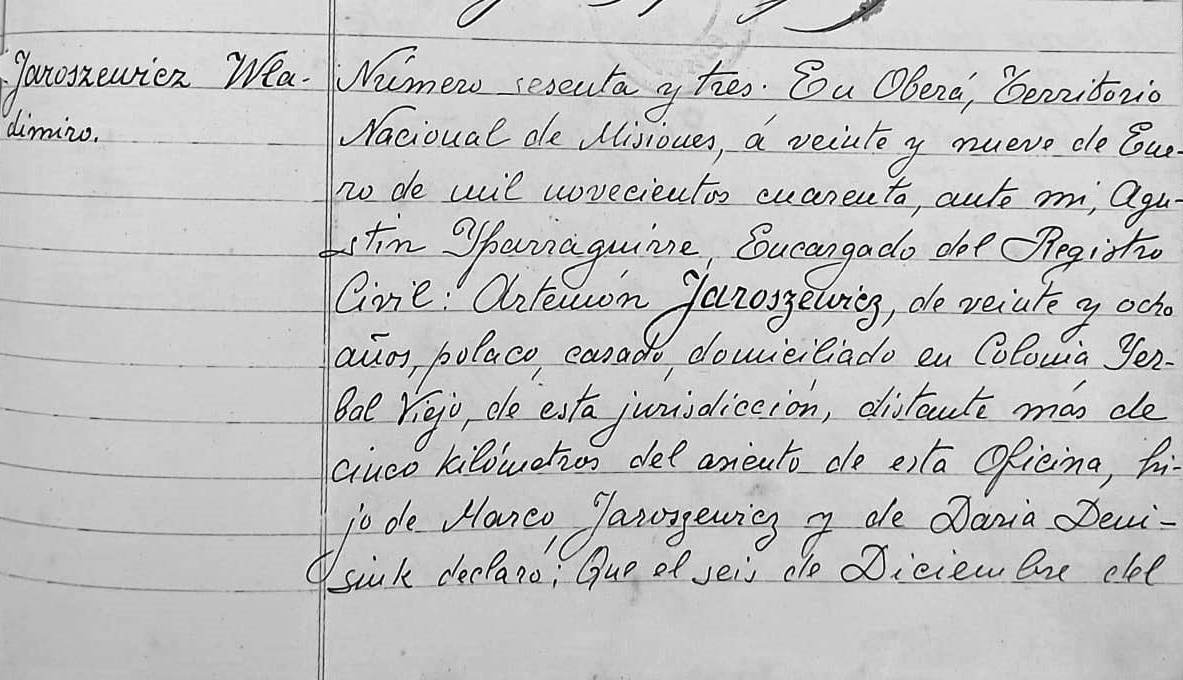 Jaroszewicz Wla-
dimiro.
Número sesenta y tres. En Oberá, Territorio
Nacional de Misiones, á veinte y nueve de Ene-
ro de mil novecientos cuarenta, ante mi, Agu-
stín Yparraguirre, Encargado del Registro
Civil: Artemón Jaroszewicz, de veinte y ocho
años, polaco, casado, domiciliado en Colonia Yer-
bal Viejo, de esta jurisdicción, distante más de
cinco kilómetros del asiento de esta Oficina, hi-
jo de Marco Jaroszewicz y de Daria Deni-
siuk declaró: Que el seis de Diciembre del